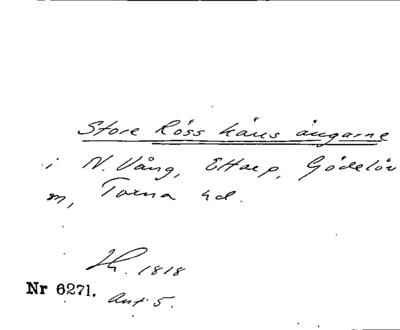 Store Röss käns ängarne
i N. Vång, Ettarp, Gödelöv
m, Torna hd.
1818
Nr 6271. Akt 5.